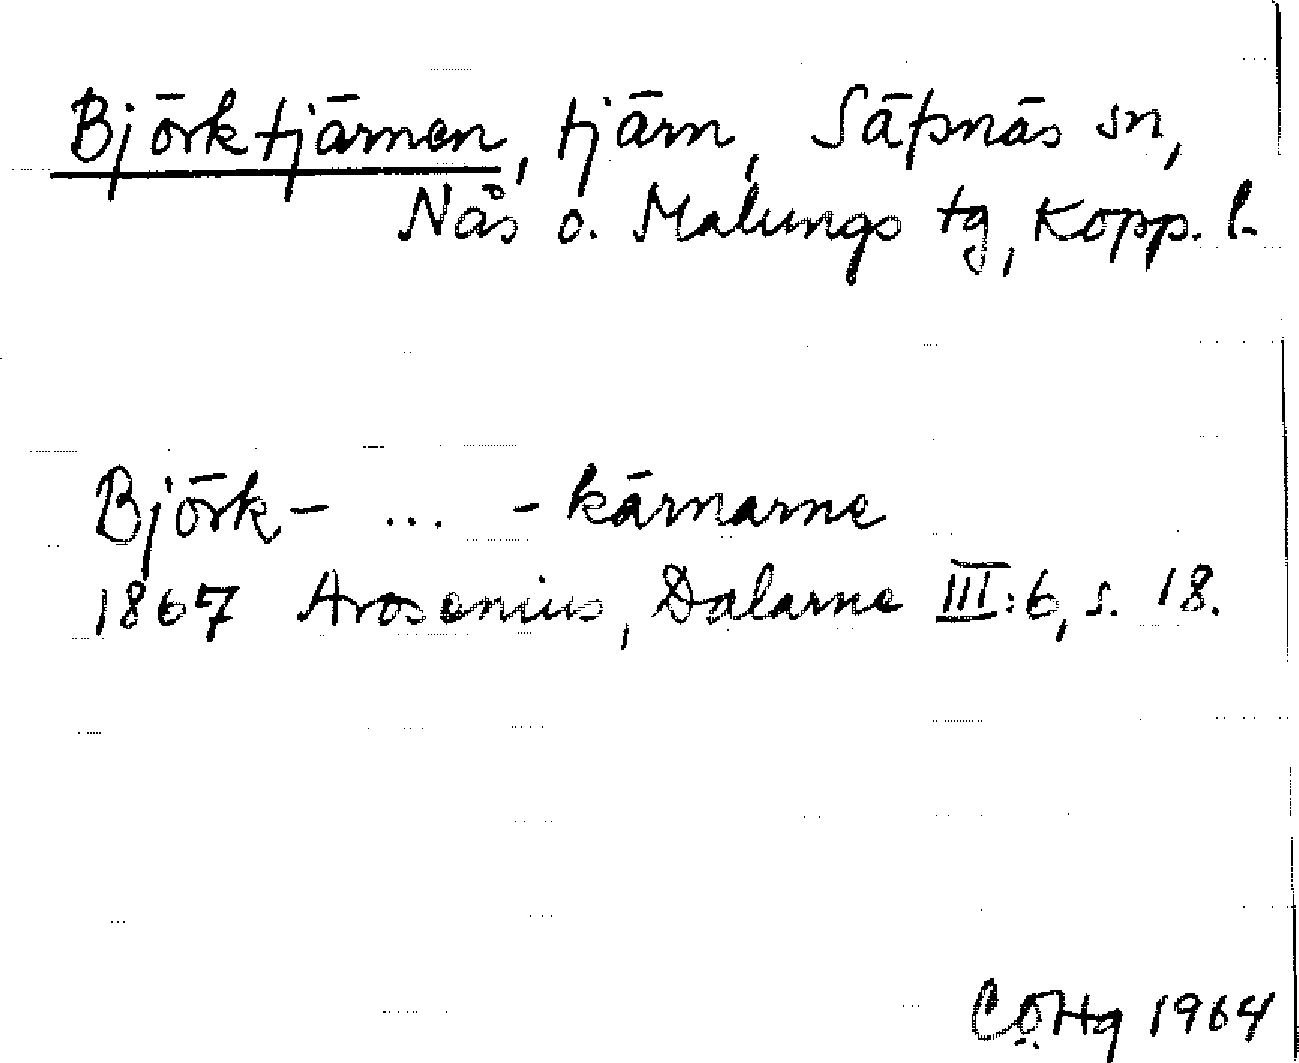 Björktjärnen, tjärn, Säfsnäs sn,
Nås o. Malungs tg, Kopp. l.
Björk- ... -kärnarne
1867 Arosenius, Dalarne III:6, s. 18.
CÖHg 1964